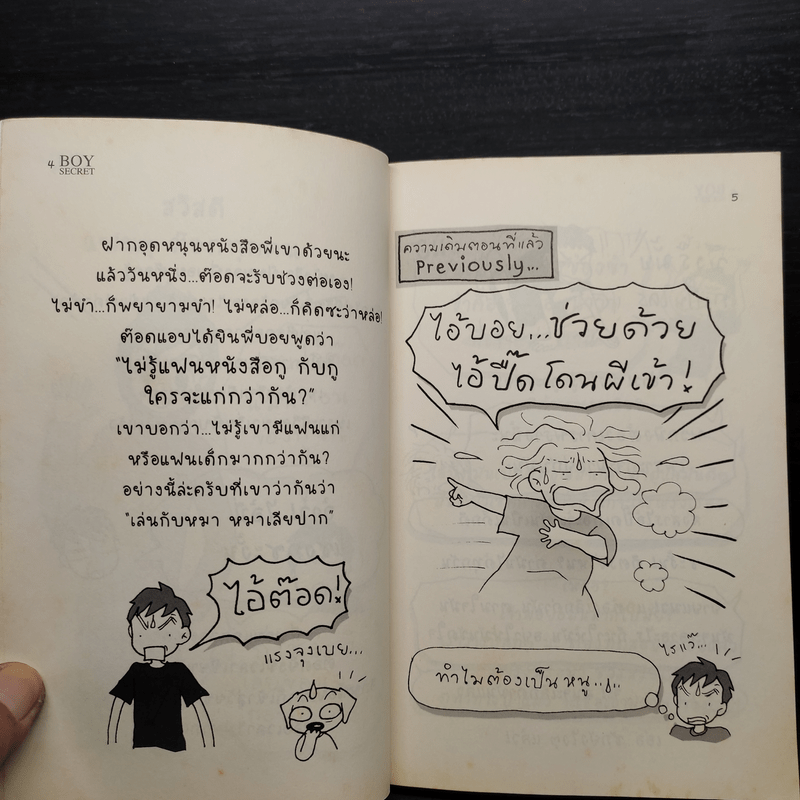 4 BOY
SECRET
ฝากอุดหนุนหนังสือพี่เขาด้วยนะ
แล้ววันหนึ่ง...ต๊อดจะรับช่วงต่อเอง!
ไม่ขำ...ก็พยายามขำ! ไม่หล่อ...ก็คิดซะว่าหล่อ!
ต๊อดแอบได้ยินพี่บอยพูดว่า
"ไม่รู้แฟนหนังสือกู กับกู
ใครจะแก่กว่ากัน?"
เขาบอกว่า...ไม่รู้เขามีแฟนแก่
หรือแฟนเด็กมากกว่ากัน?
อย่างนี้ล่ะครับที่เขาว่ากันว่า
"เล่นกับหมา หมาเลียปาก"
ไอ้ต๊อด!
แรงจุงเบย...
5
ความเดิมตอนที่แล้ว
Previously...
ไอ้บอย...ช่วยด้วย
ไอ้ปื๊ดโดนผีเข้า!
ไรแว๊...
ทำไมต้องเป็นหนู...